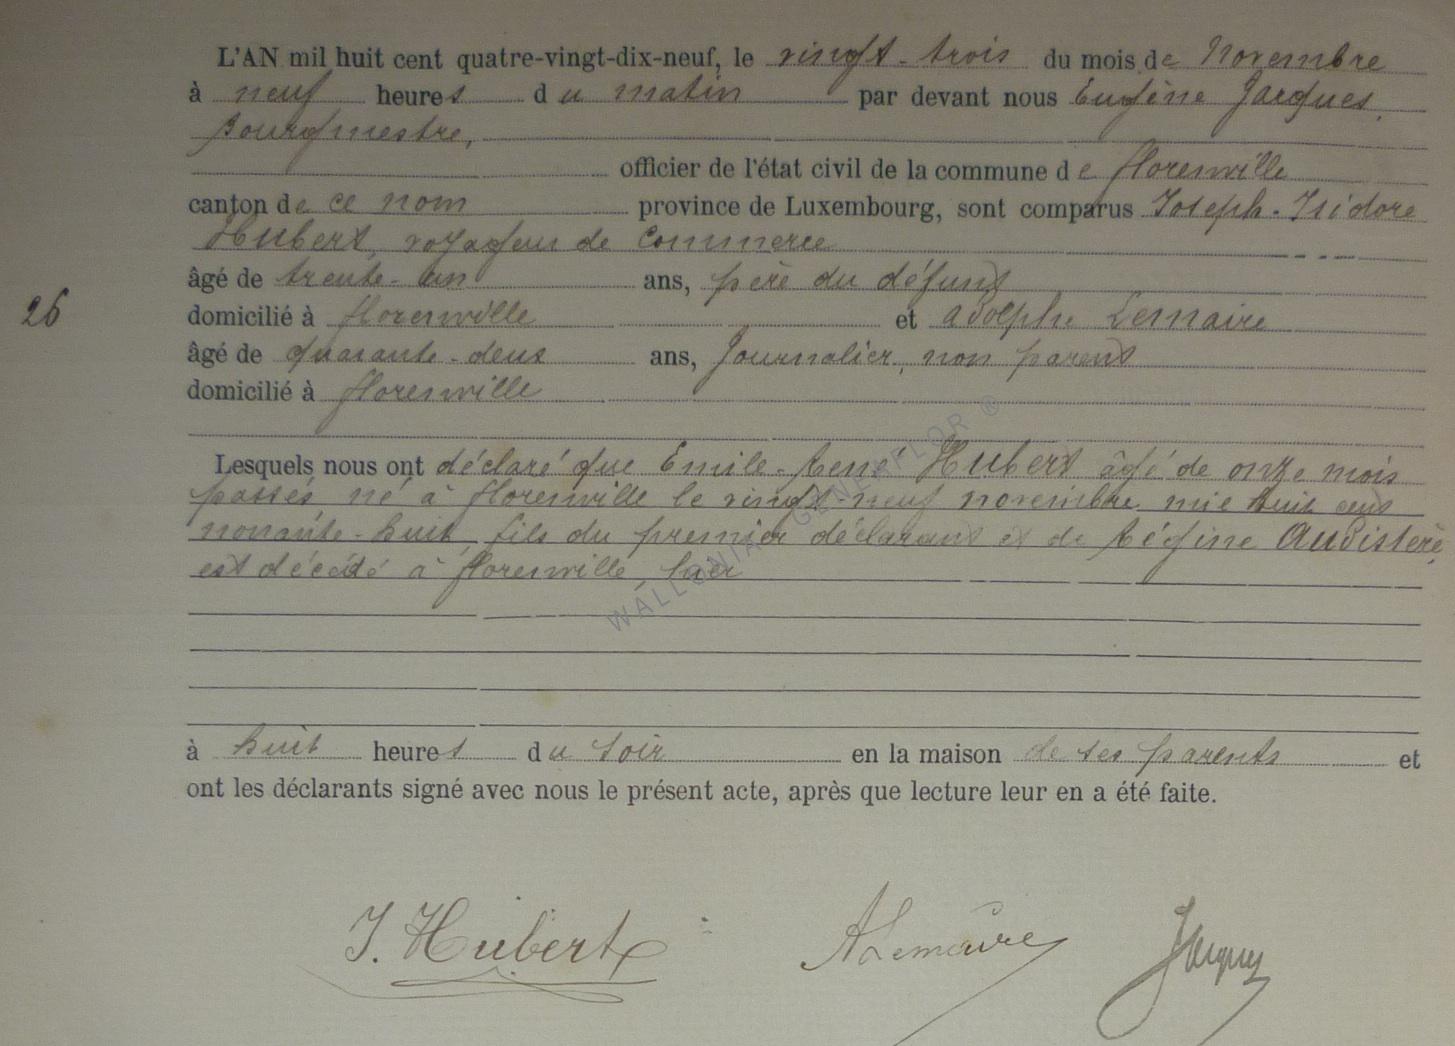 L'AN mil huit cent quatre-vingt-dix-neuf, le vingt-trois du mois de Novembre
à neuf heures du matin par devant nous Eugène Jacques,
Bourgmestre,
officier de l'état civil de la commune de florenville
canton de ce nom province de Luxembourg, sont comparus Joseph-Isidore
Hubert, voyageur de Commerce
âgé de trente-un ans, père du défunt
26
domicilié à florenville et adolphe Lemaire
âgé de quarante-deux ans, Journalier, non parent
domicilié à florenville
Lesquels nous ont déclaré que Emile-René Hubert âgé de onze mois
passés, né à florenville le vingt-neuf novembre mil huit cent
nonante-huit, fils du premier déclarant et de Régine Audistère,
est décédé à florenville, hier
à huit heures du soir en la maison de ses parents et
ont les déclarants signé avec nous le présent acte, après que lecture leur en a été faite.
J. Hubert ALemaire Jacques
WALLONIA GENEAFLOR ®